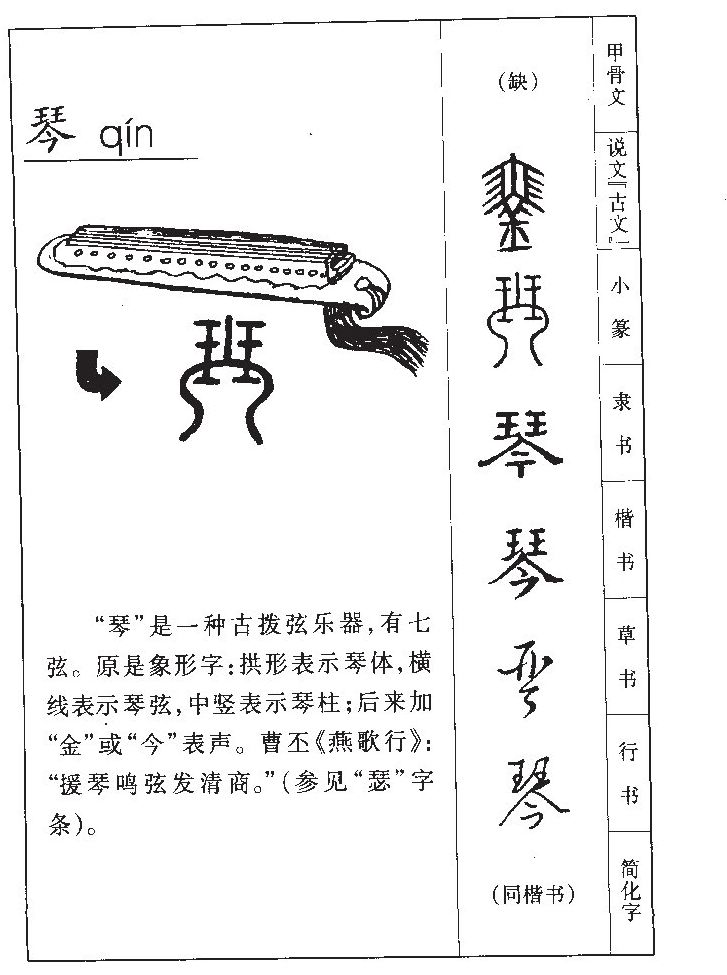 琴 qín
“琴”是一种古拨弦乐器,有七
弦。原是象形字:拱形表示琴体,横
线表示琴弦,中竖表示琴柱;后来加
“金”或“今”表声。曹丕《燕歌行》:
“援琴鸣弦发清商。”(参见“瑟”字
条)。
(缺)
琴
琴
琴
琴
琴
琴
(同楷书)
甲骨文
说文『古文』
小篆
隶书
楷书
草书
行书
简化字